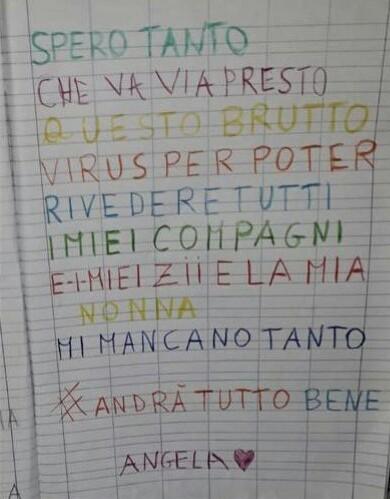 SPERO TANTO
CHE VA VIA PRESTO
QUESTO BRUTTO
VIRUS PER POTER
RIVEDERE TUTTI
I MIEI COMPAGNI
E-I-MIEI ZII E LA MIA
NONNA
MI MANCANO TANTO
# ANDRÀ TUTTO BENE
ANGELA ♥